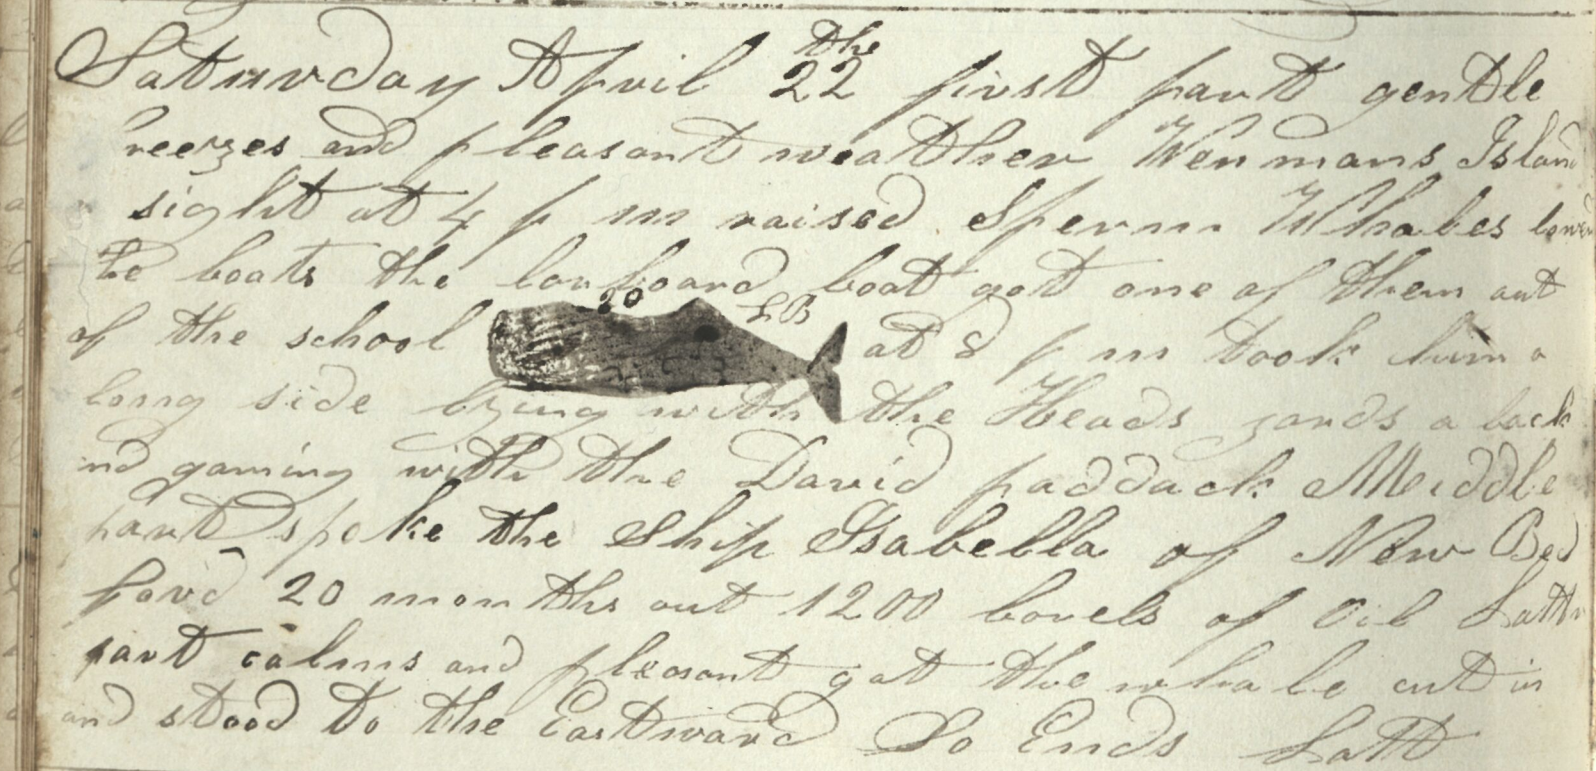 the
Saturday April 22 first part gentle
breezes and pleasant weather Wenmans Island
sight at 4 p m raised Sperm Whales lowerd
te boats the larboard boat got one of them out
20 LB
of the school at 8 p m took him a
long side lying with the Heads yards a back
nd gaming with the David paddack Middle
part speke the Ship Isabella of New Bed
ford 20 months out 1200 barels of Oil Lattr
part calms and pleasant got the whale cut in
and stood to the Eastward So Ends Latt